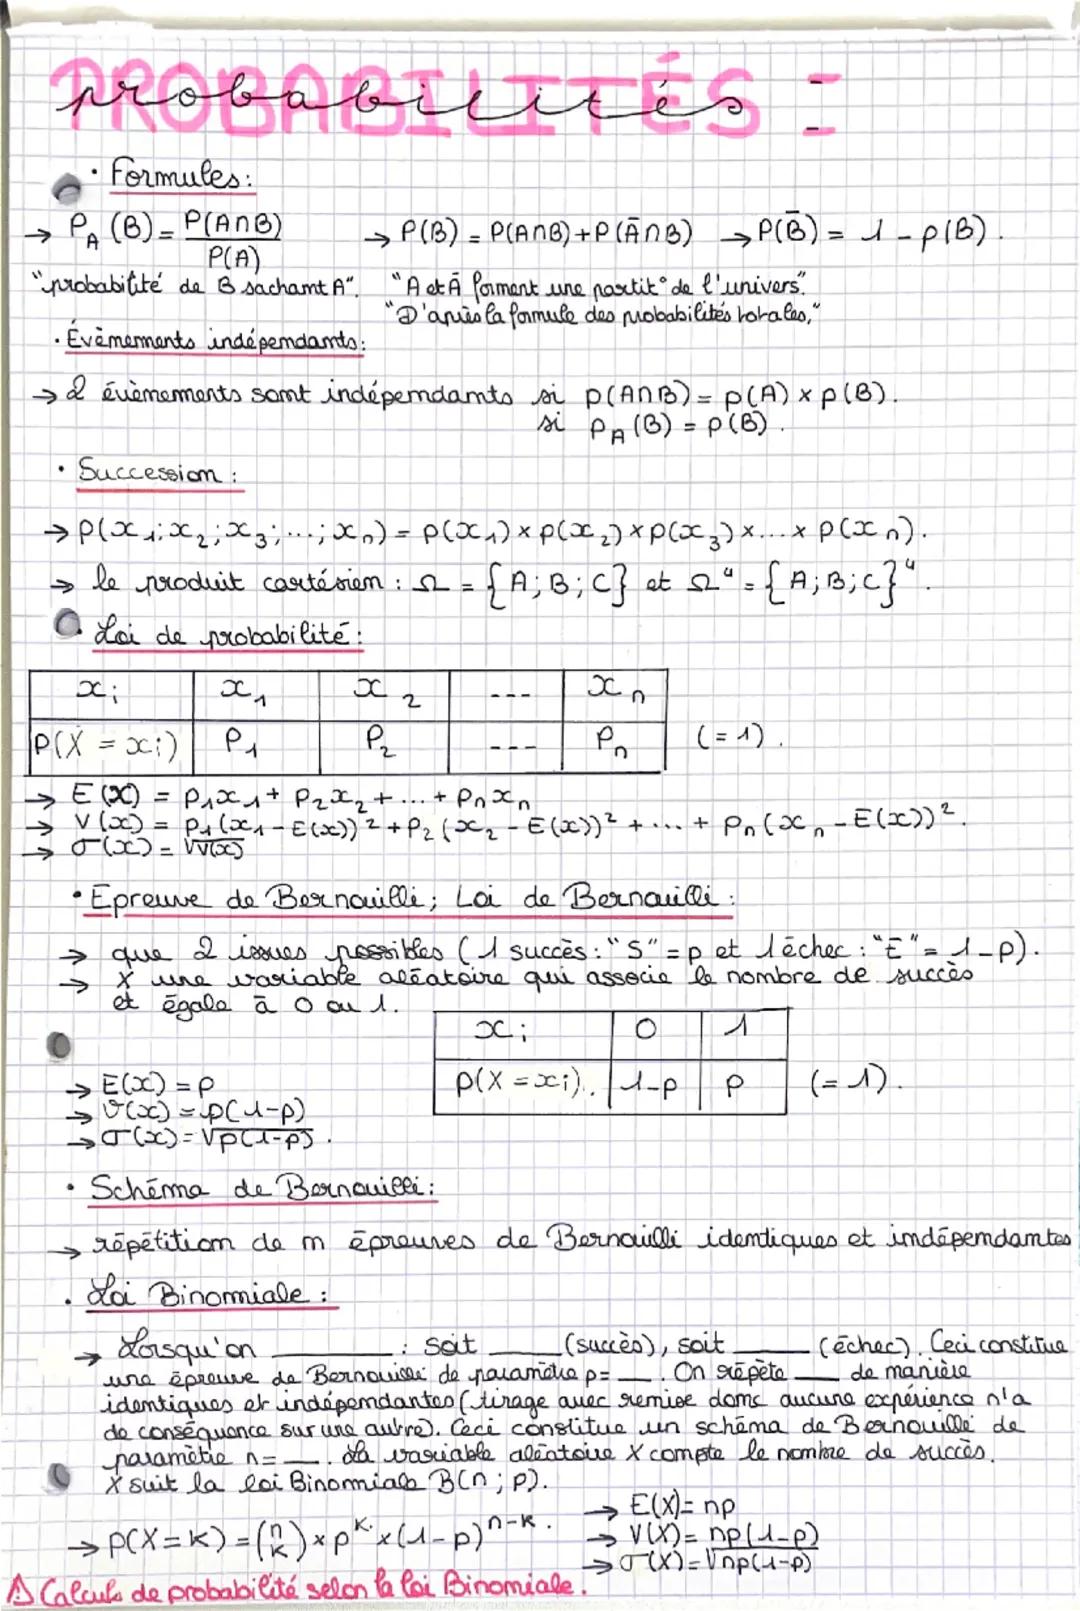 PROBABILITÉS :
probabilités
• Formules :
→ P_A (B) = P(A∩B) / P(A) → P(B) = P(A∩B) + P(Ā∩B) → P(B̄) = 1 - p(B).
"probabilité de B sachant A". "A et Ā forment une partit° de l'univers".
"D'après la formule des probabilités totales,"
• Évènements indépendants :
→ 2 évènements sont indépendants si p(A∩B) = p(A) × p(B).
si P_A (B) = p(B).
• Succession :
→ p(x₁; x₂; x₃; ...; xₙ) = p(x₁) × p(x₂) × p(x₃) × ... × p(xₙ).
→ le produit cartésien : Ω = {A; B; C} et Ω⁴ = {A; B; C}⁴.
• Loi de probabilité :
xᵢ x₁ x₂ --- xₙ
P(X = xᵢ) P₁ P₂ --- Pₙ (= 1).
→ E(x) = p₁x₁ + p₂x₂ + ... + pₙxₙ
→ V(x) = p₁(x₁ - E(x))² + p₂(x₂ - E(x))² + ... + pₙ(xₙ - E(x))².
→ σ(x) = √V(x)
• Epreuve de Bernouilli ; Loi de Bernouilli :
→ que 2 issues possibles (1 succès : "S" = p et 1 échec : "E" = 1-p).
→ X une variable aléatoire qui associe le nombre de succès
et égale à 0 ou 1.
xᵢ 0 1
p(X = xᵢ). 1-p p (= 1).
→ E(x) = p
→ V(x) = p(1-p)
→ σ(x) = √p(1-p).
• Schéma de Bernouilli :
→ répétition de n épreuves de Bernouilli identiques et indépendantes
• Loi Binomiale :
→ Lorsqu'on ______ : soit ____ (succès), soit ____ (échec). Ceci constitue
une épreuve de Bernouilli de paramètre p= __. On répète ___ de manière
identiques et indépendantes (tirage avec remise donc aucune expérience n'a
de conséquence sur une autre). Ceci constitue un schéma de Bernouilli de
paramètre n= __. La variable aléatoire X compte le nombre de succès.
X suit la loi Binomiale B(n ; p).
→ E(X) = np
→ p(X=k) = (n k) × p^k × (1-p)^n-k. → V(X) = np(1-p)
→ σ(X) = √np(1-p)
⚠ Calculs de probabilité selon la loi Binomiale.